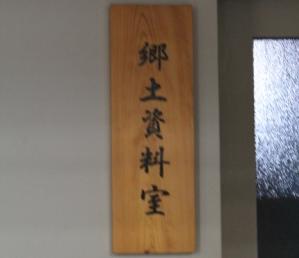 郷土資料室